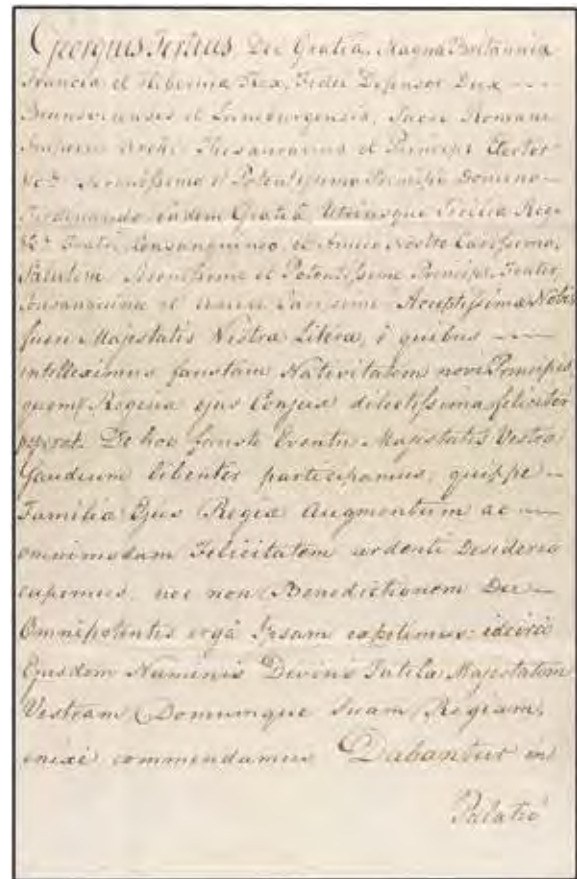 Georgius Tertius Dei Gratiâ, Magnæ Britanniæ
Franciæ et Hiberniæ Rex, Fidei Defensor Dux
Brunsvicensis et Luneburgensis, Sacri Romani
Imperii Archi-Thesaurarius et Princeps Elector
&c.ᵃ Serenissimo et Potentissimo Principi Domino
Ferdinando eâdem Gratiâ Utriusque Siciliæ Regi
&c.ᵃ Fratri Consanguineo, et Amico Nostro Carissimo,
Salutem! Serenissime et Potentissime Princeps, Frater,
Consanguinee et Amice Carissime. Acceptissimæ Nobis
fuere Majestatis Vestræ Literæ, è quibus
intelleximus faustam Nativitatem novi Principis,
quem Regina ejus Conjux dilectissima feliciter
peperat. De hoc fausto Eventu Majestatis Vestræ
Gaudium libenter participamus, quippe
Familiæ Ejus Regiæ Augmentum ac
omnimodam Felicitatem ardenti Desiderio
cupimus, nec non Benedictionem Dei
Omnipotentis ergà Ipsam expetimus: idcircò
Ejusdem Numinis Divini Tutelæ Majestatem
Vestram Domumque Suam Regiam,
enixè commendamus Dabantur in
Palatio